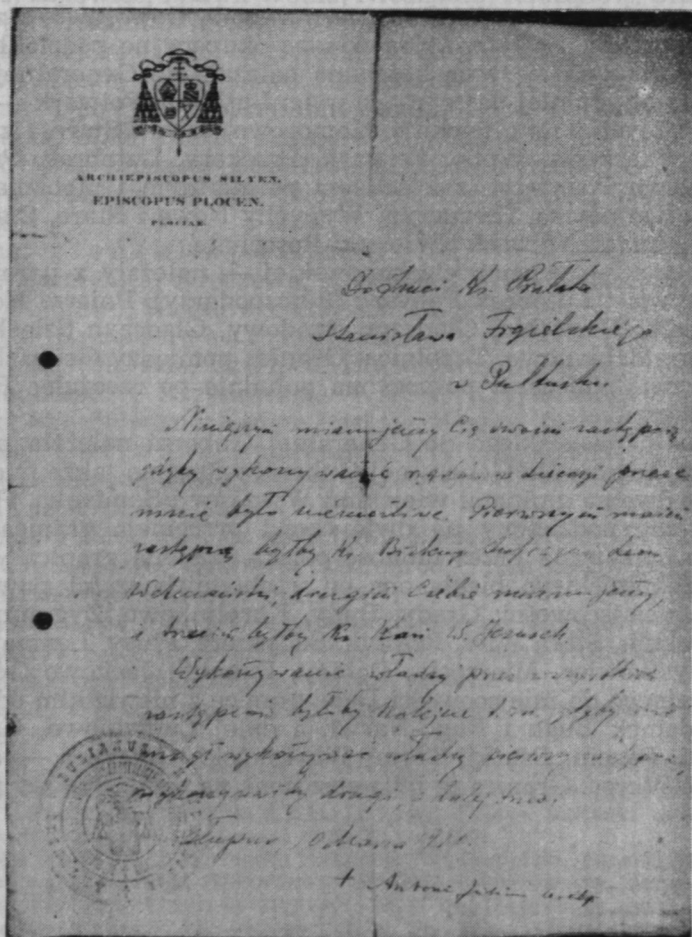 ARCHIEPISCOPUS SILYEN.
EPISCOPUS PLOCEN.
PLOCIAE.
Ks. Prałata
Stanisława Figielskiego
w Pułtusku.
Niniejszym mianujemy Cię swoim zastępcą
gdyby wykonywanie rządów w diecezji przeze
mnie było niemożliwe. Pierwszym moim
zastępcą byłby Ks. Biskup Sufragan Leon
Wetmański, drugim Ciebie mianujemy,
a trzecim byłby Ks. Kan. W. Jezusek
Wykonywanie władzy przez wszystkich
zastępców byłoby kolejne t. zn. gdyby nie
mógł wykonywać władzy pierwszy zastępca,
wykonywałby drugi, a
Słupno,
+ Antoni Julian